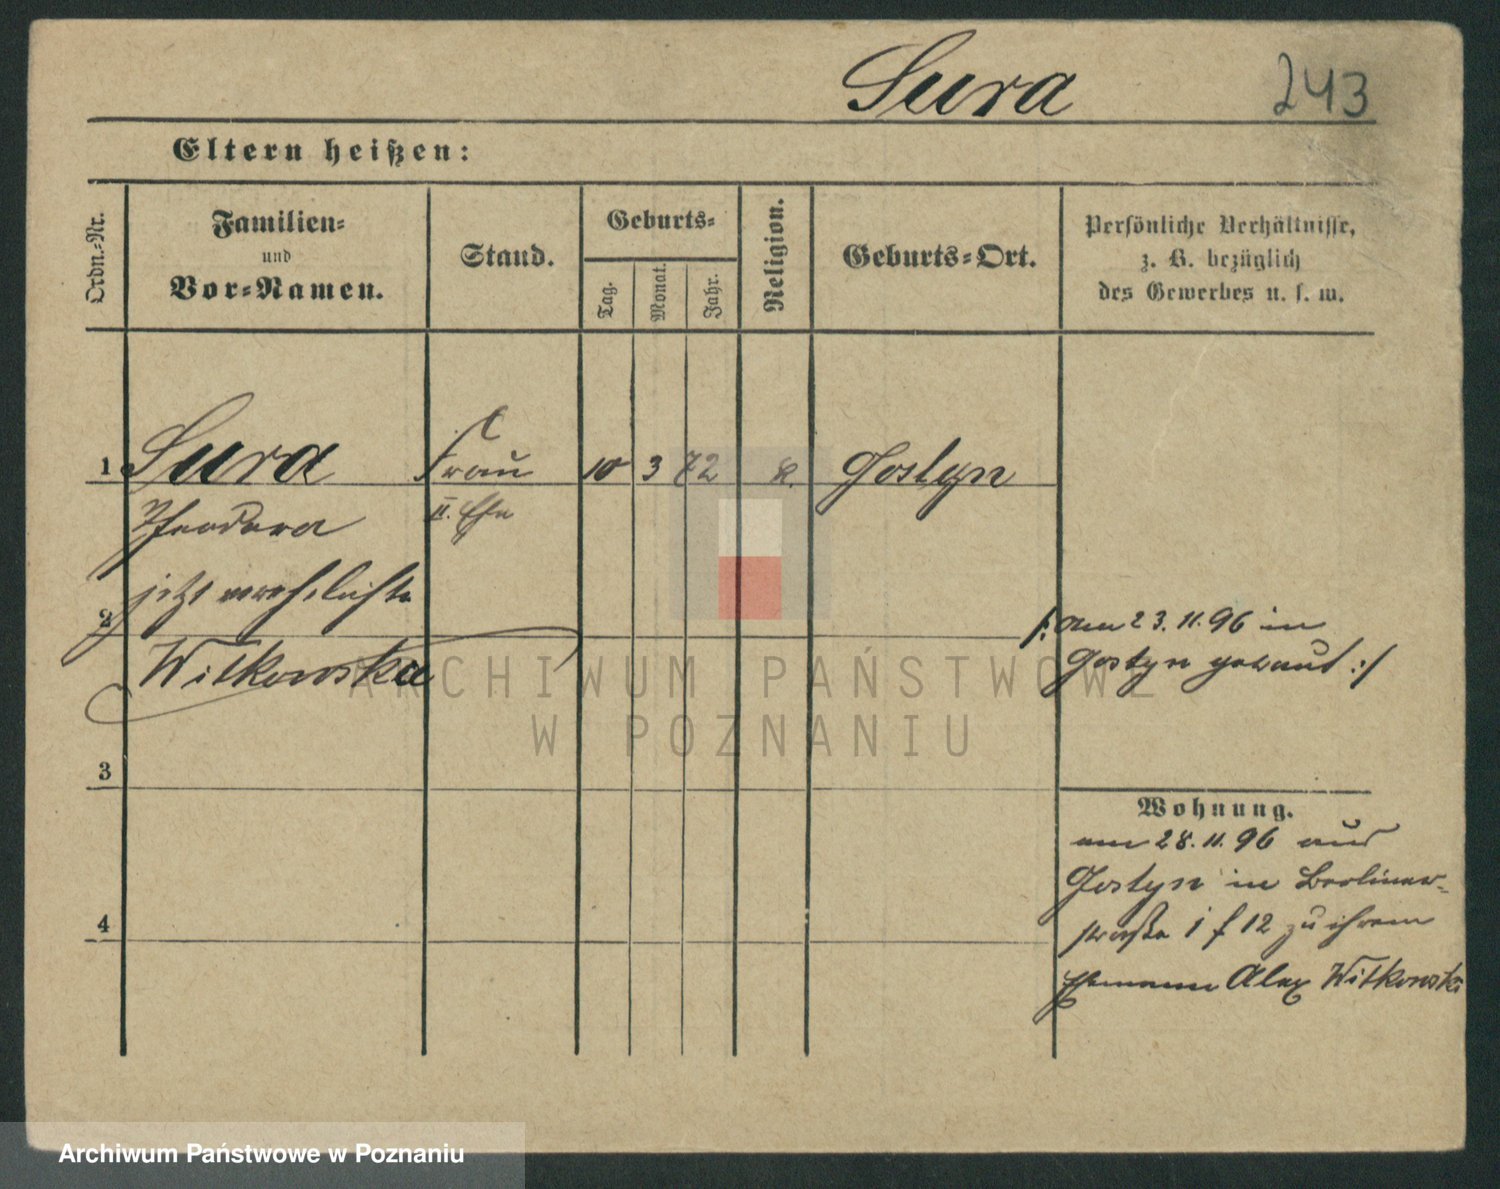 Sura 243
Eltern heißen:
Ordn.-Nr.
Familien-
und
Vor-Namen.
Stand.
Geburts-
Tag.
Monat.
Jahr.
Religion.
Geburts-Ort.
Persönliche Verhältnisse,
z. B. bezüglich
des Gewerbes u. s. w.
1 Sura Frau 10 3 72 k. Gostyn
Theodora II. Ehe
jetzt verehelichte
2
Witkowska
/: am 23.11.96 in
Gostyn getraut :/
3
Wohnung.
am 28.11.96 aus
Gostyn in Berliner-
straße 12 zu ihrem
4
Ehemann Alex Witkowski
ARCHIWUM PAŃSTWOWE
W POZNANIU
Archiwum Państwowe w Poznaniu